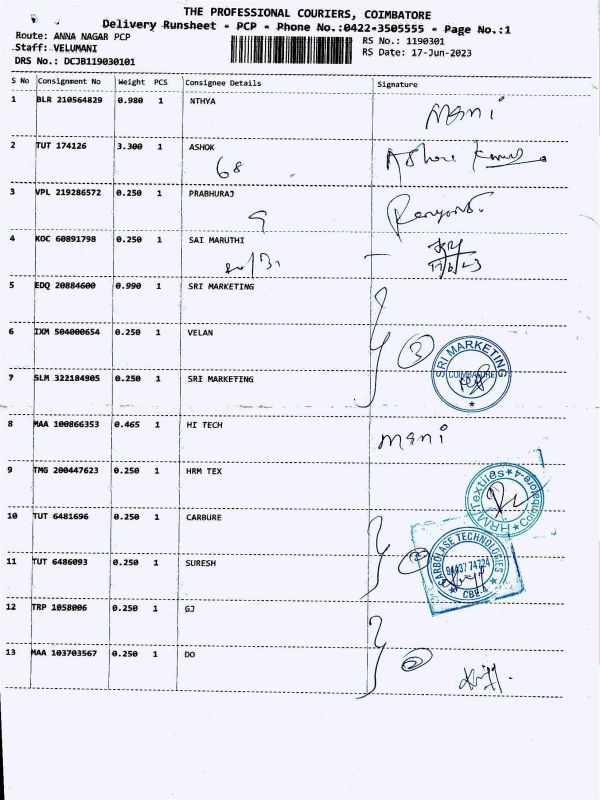 THE PROFESSIONAL COURIERS, COIMBATORE
Delivery Runsheet - PCP - Phone No.:0422-3505555 - Page No.:1
Route: ANNA NAGAR PCP
RS No.: 1190301
Staff: VELUMANI
RS Date: 17-Jun-2023
DRS No.: DCJB119030101
S No Consignment No Weight PCS Consignee Details Signature
1 BLR 210564829 0.980 1 NTHYA
mani
2 TUT 174126 3.300 1 ASHOK
68 Ashok Kumar
3 VPL 219286572 0.250 1 PRABHURAJ
9
4 KOC 60891798 0.250 1 SAI MARUTHI
17/6/23
5 EDQ 20884600 0.990 1 SRI MARKETING
6 IXM 504000654 0.250 1 VELAN
3
SRI MARKETING
COIMBATORE
7 SLM 322184905 0.250 1 SRI MARKETING
8 MAA 100866353 0.465 1 HI TECH
mani
9 TMG 200447623 0.250 1 HRM TEX
HRM Textiles
Coimbatore-4
10 TUT 6481696 0.250 1 CARBURE
CARBOLASE TECHNOLOGIES
94437 74724
CBE-4
11 TUT 6486093 0.250 1 SURESH
2
12 TRP 1058006 0.250 1 GJ
13 MAA 103703567 0.250 1 DO
2